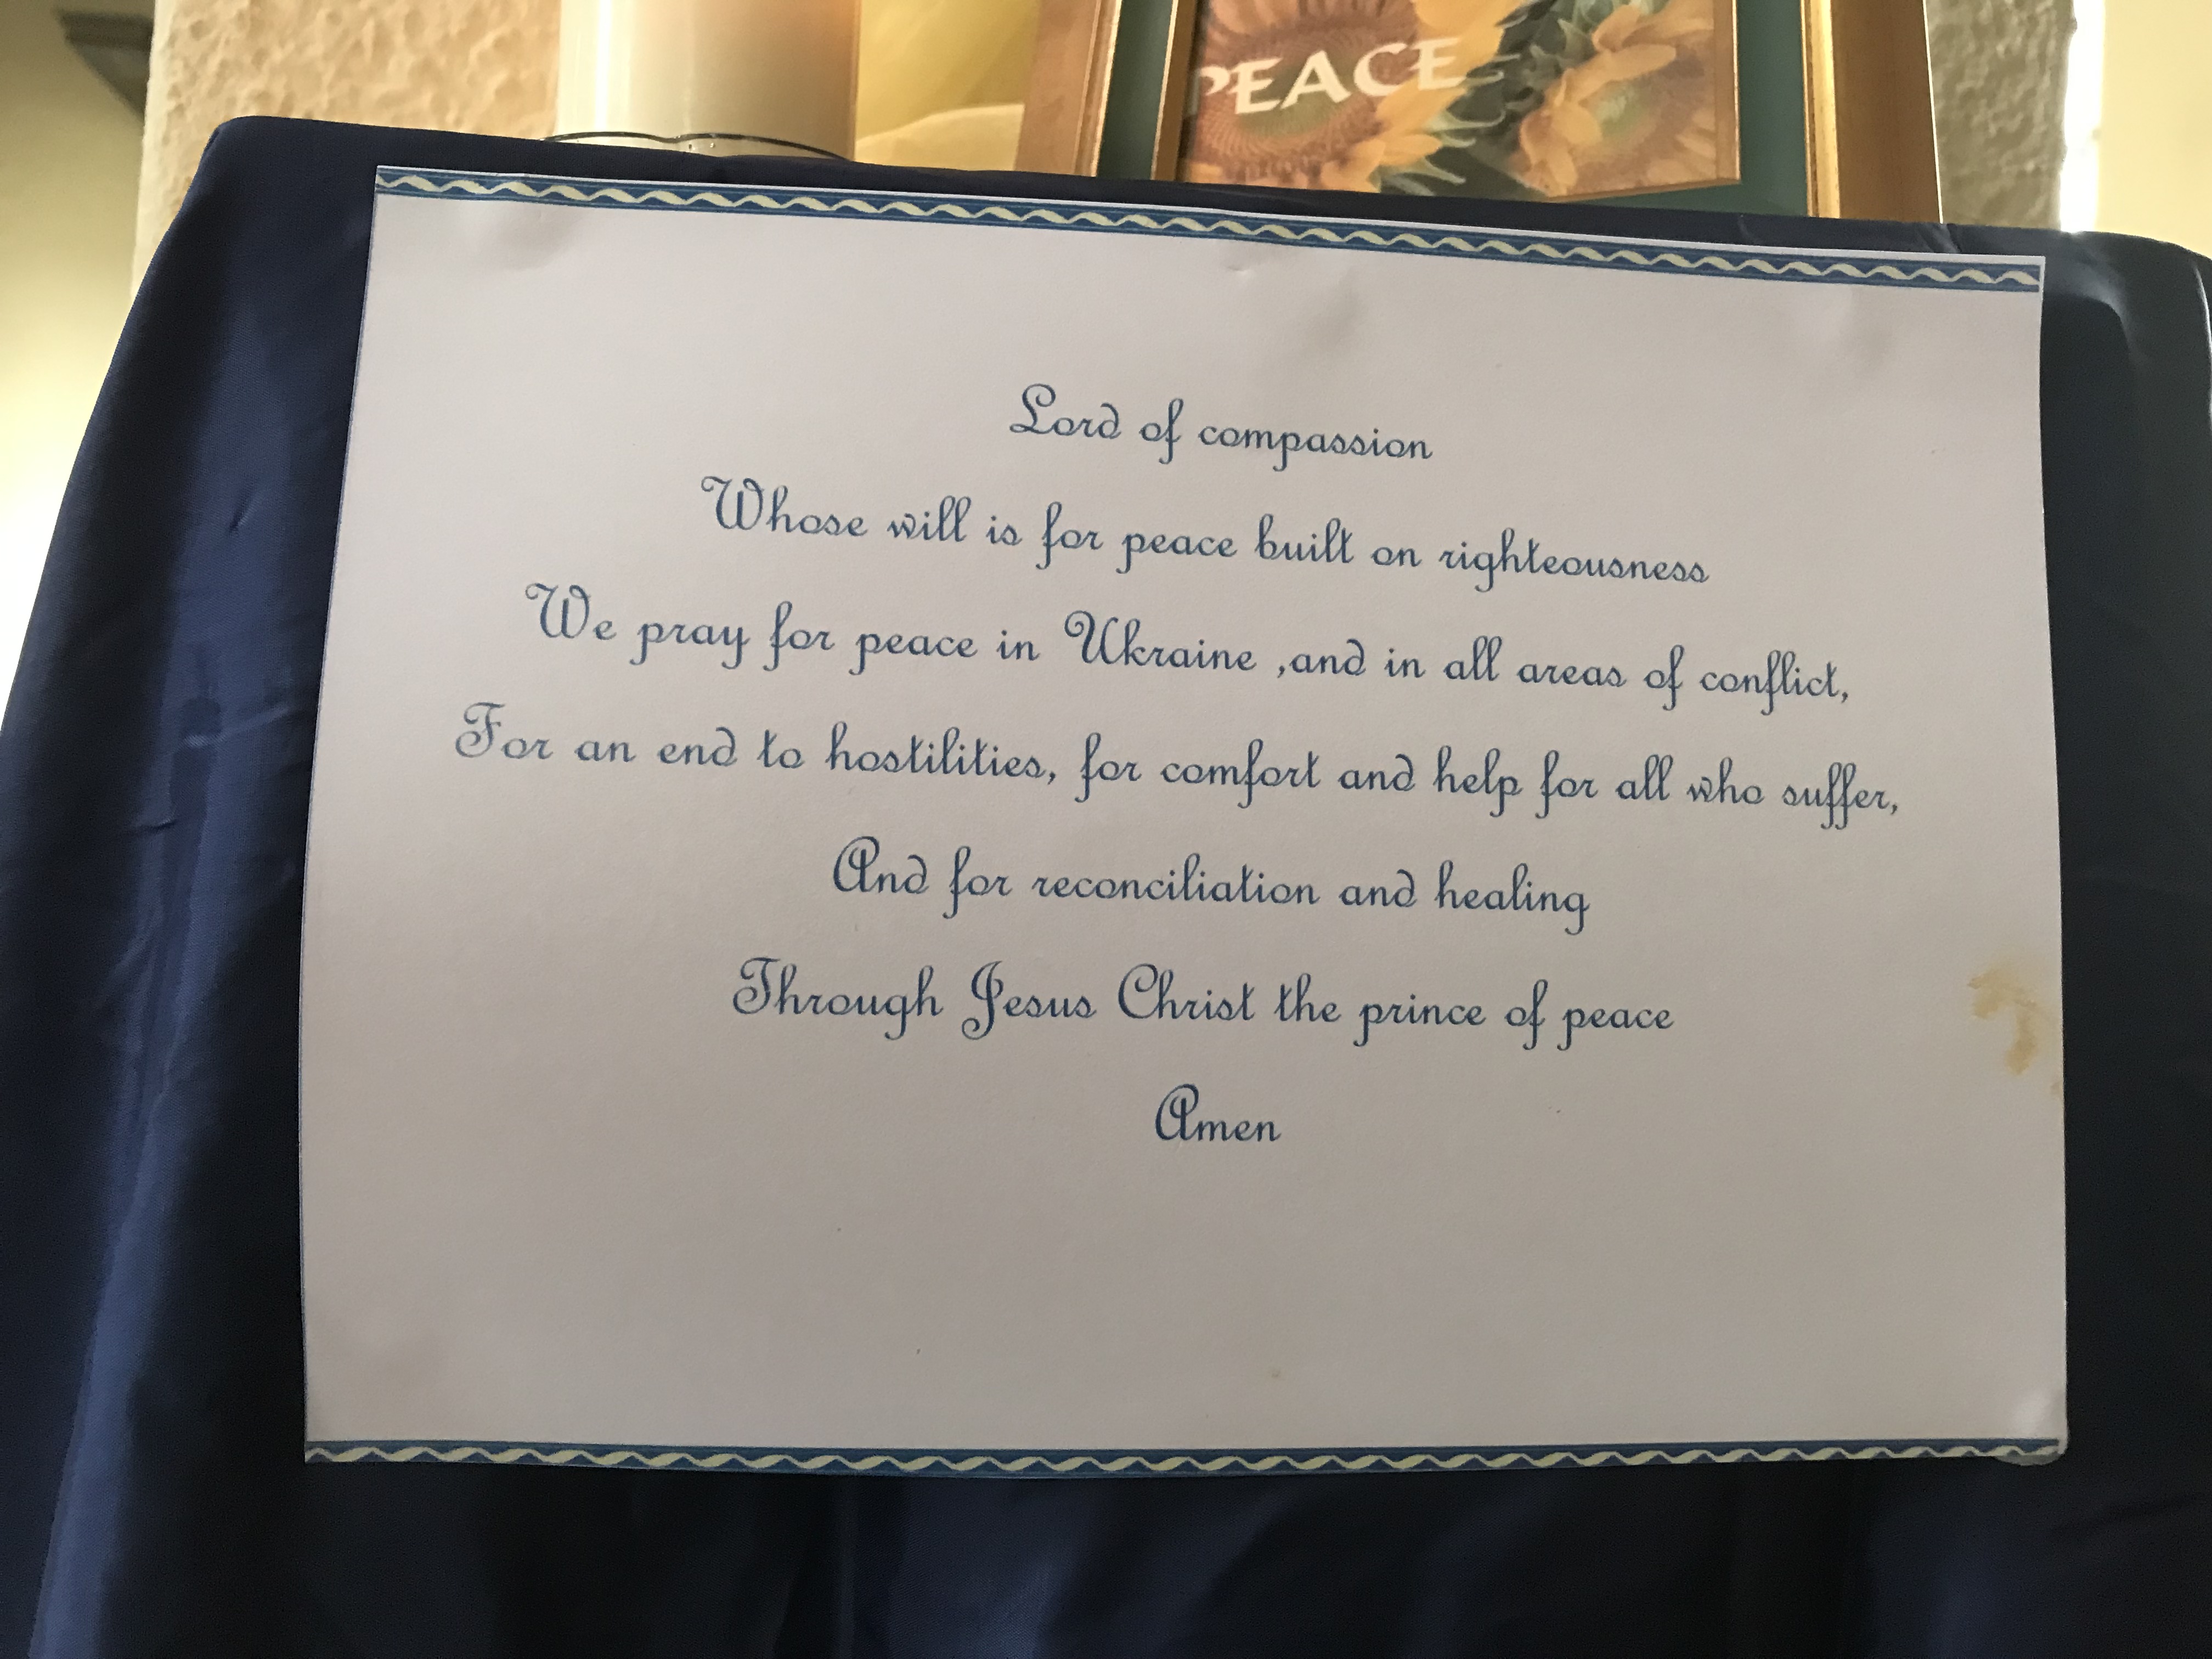 PEACE
Lord of compassion
Whose will is for peace built on righteousness
We pray for peace in Ukraine ,and in all areas of conflict,
For an end to hostilities, for comfort and help for all who suffer,
And for reconciliation and healing
Through Jesus Christ the prince of peace
Amen